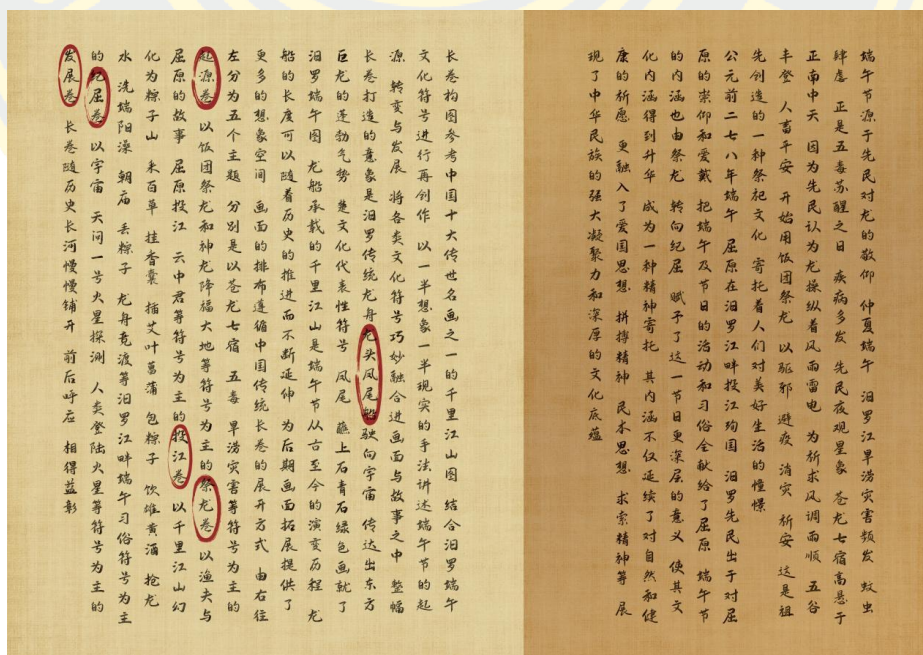 端午节源于先民对龙的敬仰 仲夏端午 汨罗江旱涝灾害频发 蚊虫
肆虐 正是五毒苏醒之日 疾病多发 先民夜观星象 苍龙七宿高悬于
正南中天 因为先民认为龙操纵着风雨雷电 为祈求风调雨顺 五谷
丰登 人畜平安 开始用饭团祭龙 以驱邪 避疫 消灾 祈安 这是祖
先创造的一种祭祀文化 寄托着人们对美好生活的憧憬
公元前二七八年端午 屈原在汨罗江畔投江殉国 汨罗先民出于对屈
原的崇仰和爱戴 把端午及节日的活动和习俗全献给了屈原 端午节
的内涵也由祭龙 转向纪屈 赋予了这一节日更深层的意义 使其文
化内涵得到升华 成为一种精神寄托 其内涵不仅延续了对自然和健
康的祈愿 更融入了爱国思想 拼搏精神 民本思想 求索精神等 展
现了中华民族的强大凝聚力和深厚的文化底蕴
长卷构图参考中国十大传世名画之一的千里江山图 结合汨罗端午
文化符号进行再创作 以一半想象一半现实的手法讲述端午节的起
源 转变与发展 将各类文化符号巧妙融合进画面与故事之中 整幅
长卷打造的意象是汨罗传统龙舟龙头凤尾船驶向宇宙 传达出东方
巨龙的蓬勃气势 楚文化代表性符号 凤尾 蘸上石青石绿色画就了
汨罗端午图 龙船承载的千里江山是端午节从古至今的演变历程 龙
船的长度可以随着历史的推进而不断延伸 为后期画面拓展提供了
更多的想象空间 画面的排布遵循中国传统长卷的展开方式 由右往
左分为五个主题 分别是以苍龙七宿 五毒 旱涝灾害等符号为主的
起源卷 以饭团祭龙和神龙降福大地等符号为主的祭龙卷 以渔夫与
屈原的故事 屈原投江 云中君等符号为主的投江卷 以千里江山幻
化为粽子山 采百草 挂香囊 插艾叶菖蒲 包粽子 饮雄黄酒 抢龙
水 洗端阳澡 朝庙 丢粽子 龙舟竞渡等汨罗江畔端午习俗符号为主
的纪屈卷 以宇宙 天问一号火星探测 人类登陆火星等符号为主的
发展卷 长卷随历史长河慢慢铺开 前后呼应 相得益彰